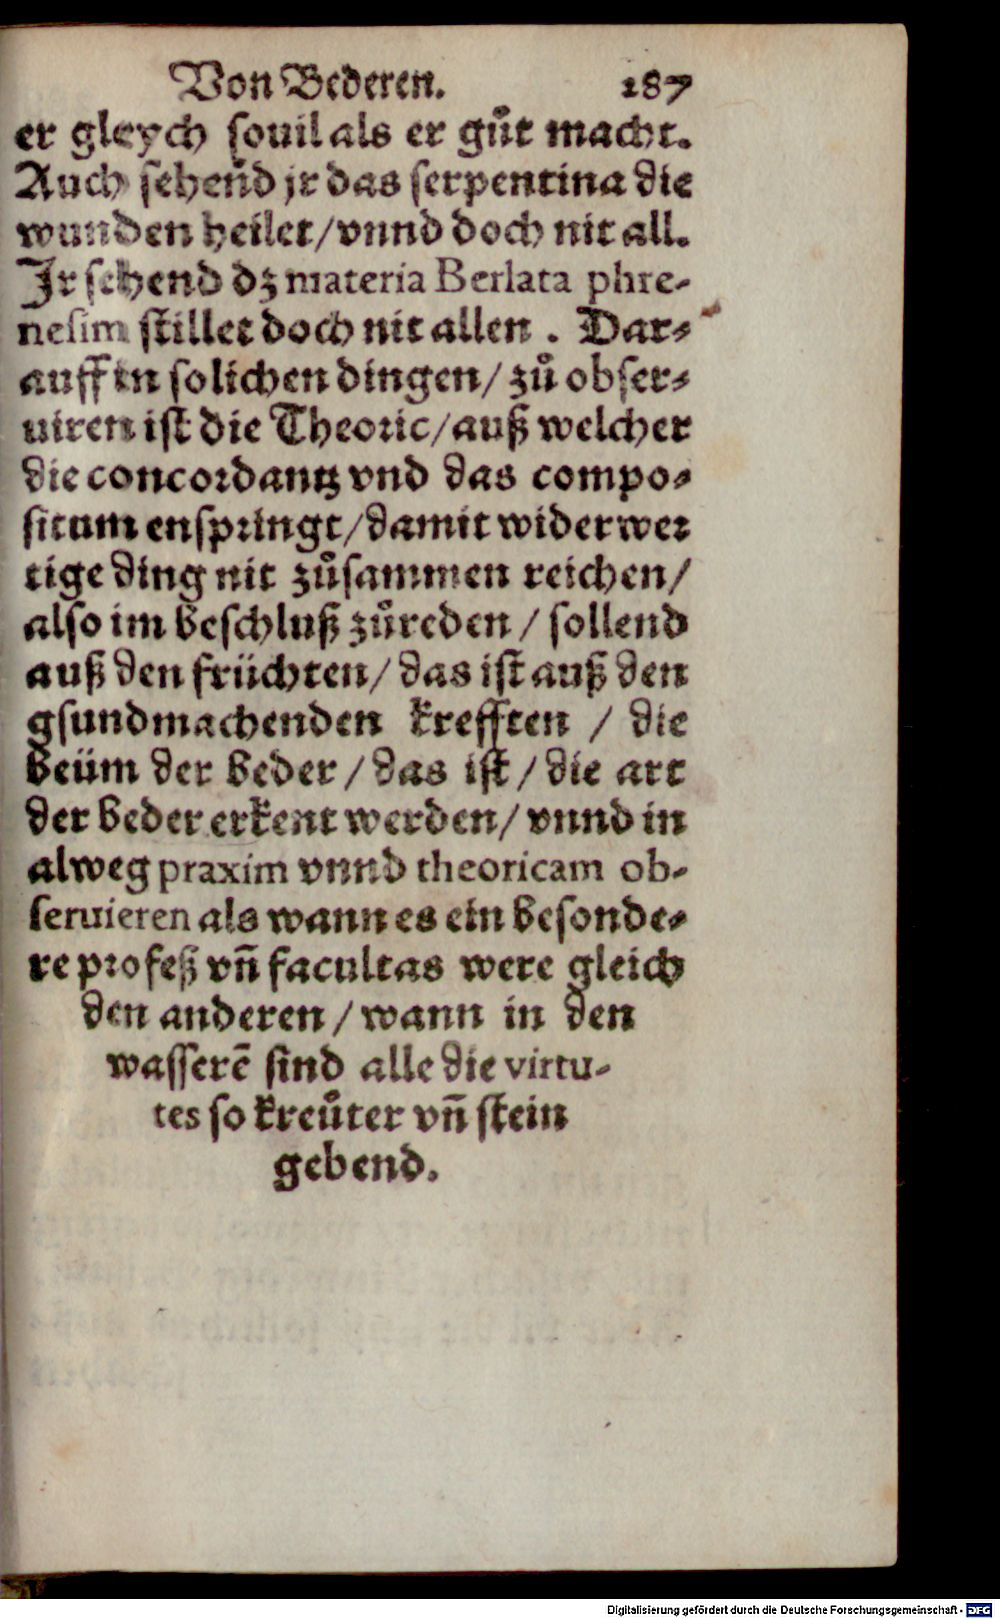 Von Bederen. 187
er gleych souil als er gůt macht.
Auch sehend jr das serpentina die
wunden heilet/vnnd doch nit all.
Jr sehend dz materia Berlata phre-
nesim stillet doch nit allen. Dar-
auff in solichen dingen/ zů obser-
uiren ist die Theoric/auß welcher
die concordantz vnd das compo-
situm enspringt/damit widerwer
tige ding nit zůsammen reichen/
also im beschluß zůreden/ sollend
auß den früchten/ das ist auß den
gsundmachenden krefften / die
beüm der beder/das ist/die art
der beder erkent werden/ vnnd in
alweg praxim vnnd theoricam ob-
seruieren als wann es ein besonde-
re profeß vñ facultas were gleich
den anderen/wann in den
wasserē sind alle die virtu-
tes so kreůter vñ stein
gebend.
Digitalisierung gefördert durch die Deutsche Forschungsgemeinschaft - DFG